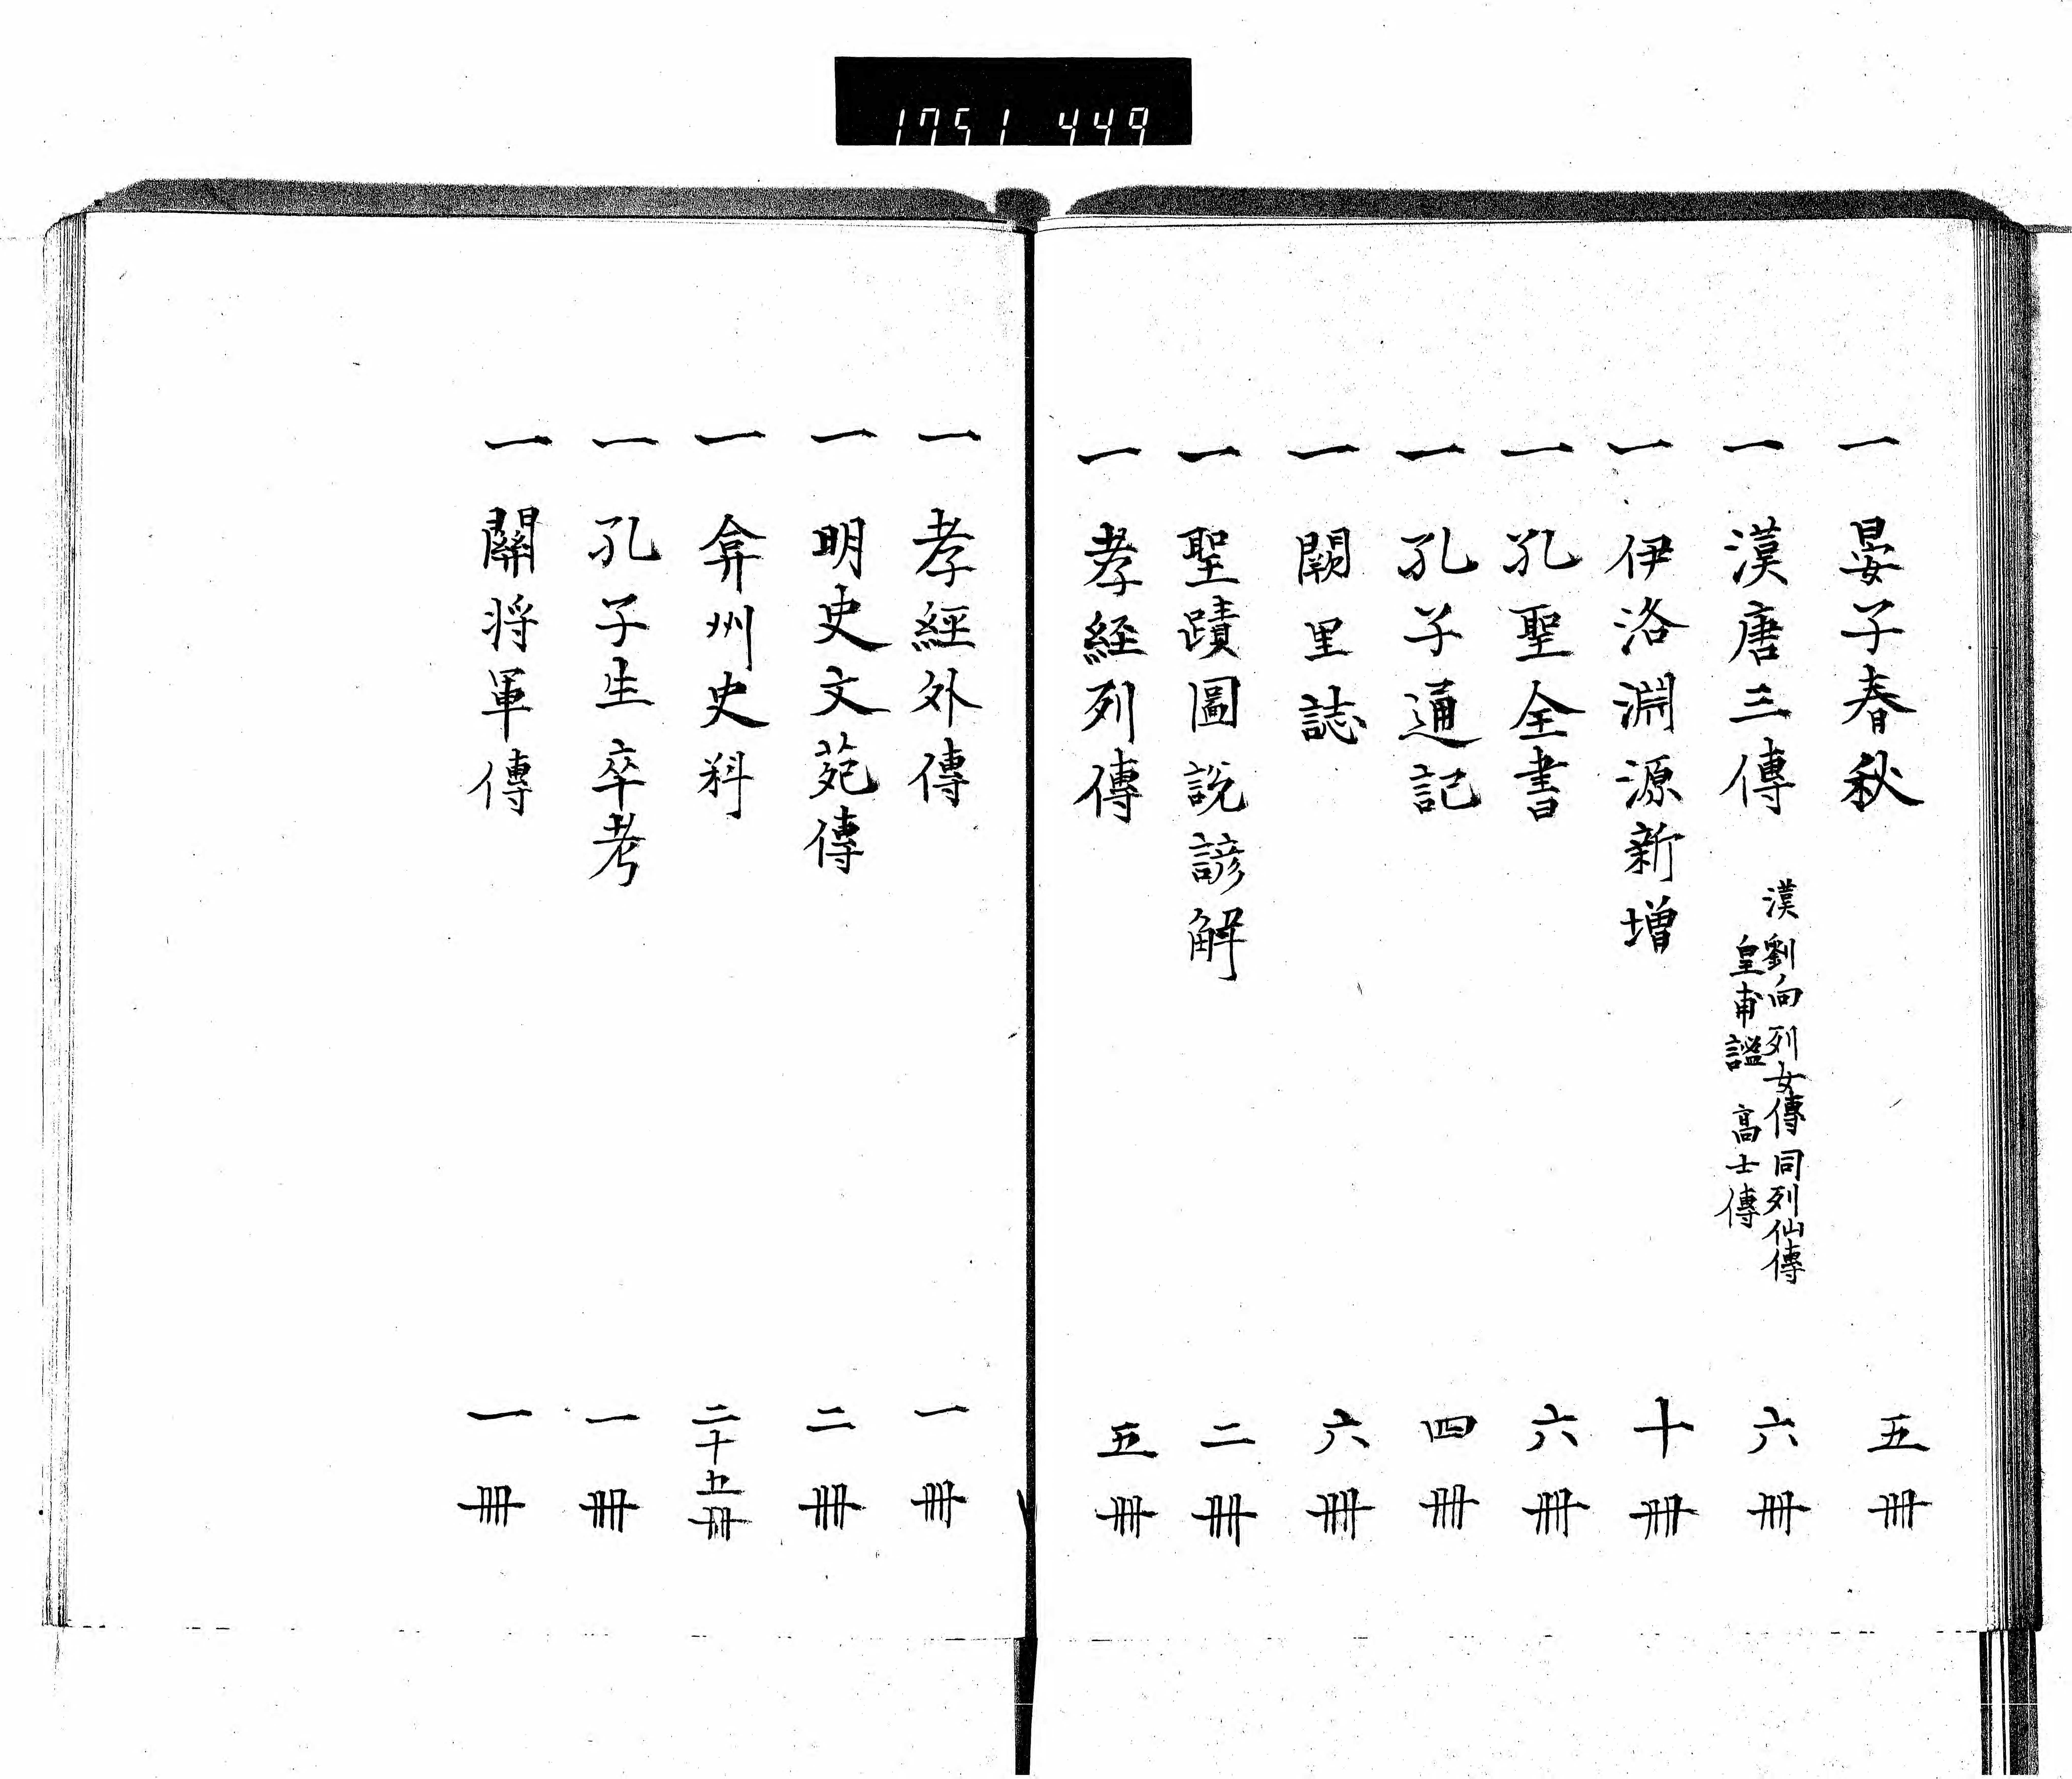 1751 449
一 晏子春秋 五冊
一 漢唐三傳 漢劉向列女傳同列仙傳 六冊
皇甫謐 高士傳
一 伊洛淵源新增 十冊
一 孔聖全書 六冊
一 孔子通記 四冊
一 闕里誌 六冊
一 聖蹟圖說諺解 二冊
一 孝経列傳 五冊
一 孝經外傳 一冊
一 明史文苑傳 二冊
一 弇州史料 二十五冊
一 孔子生卒考 一冊
一 關将軍傳 一冊